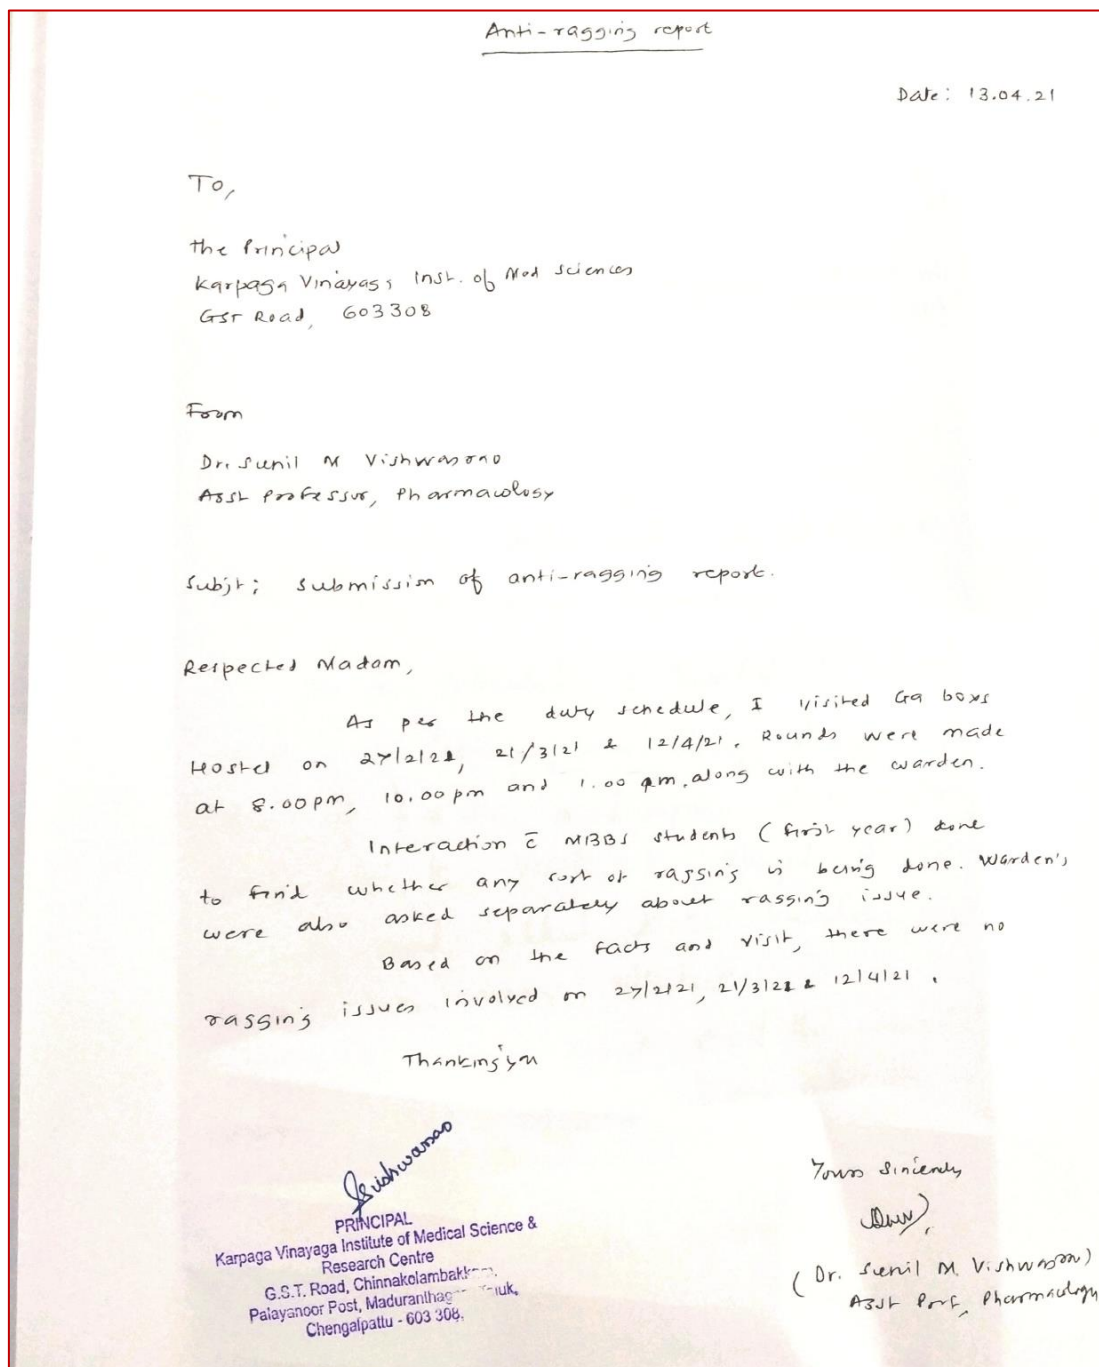 Anti-ragging report
Date: 13.04.21
To,
the Principal
Karpaga Vinayaga Inst. of Med Sciences
GST Road, 603308
From
Dr. Sunil M Vishwasrao
Asst Professor, Pharmacology
Subjt: Submission of anti-ragging report.
Respected Madam,
As per the duty schedule, I visited boys
Hostel on 27/2/21, 21/3/21 & 12/4/21. Rounds were made
at 8.00pm, 10.00pm and 1.00 am, along with the warden.
Interaction c̄ MBBS students (first year) done
to find whether any sort of ragging is being done. Warden's
were also asked separately about ragging issue.
Based on the facts and visit, there were no
ragging issues involved on 27/2/21, 21/3/21 & 12/4/21.
Thanking you
Yours Sincerely
(Dr. Sunil M. Vishwasrao)
Asst Prof, Pharmacology
Svishwasrao
PRINCIPAL
Karpaga Vinayaga Institute of Medical Science &
Research Centre
G.S.T. Road,
Palayanoor Post,
Chengalpattu - 603 308.